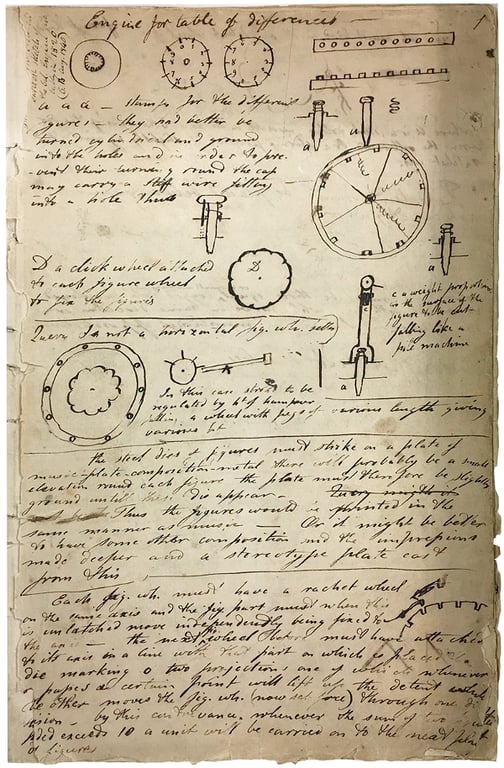 Engine for table of differences
1
a a a — stamps for the different
figures — they had better be
turned cylindrical and ground
into the holes and in order to pre-
-vent their turning round the cap
may carry a stiff wire fitting
into a hole thus
a
a
a
D a clock wheel attached
to each figure wheel
to fix the figures
D
c a weight proportion
to the surface of the
figure to be cut
falling like a
pile machine
c
a
Query Is not a horizontal fig. wh. better
In this case stroke to be
regulated by ht of hammer
falling, a wheel with pegs of various length giving
various ht
the steel dies of figures must strike on a plate of
music-plate-composition-metal there will probably be a small
elevation round each figure the plate must therefore be slightly
ground until these die appear —
Thus the figures would be printed in the
same manner as music — Or it might be better
to have some other composition and the impressions
made deeper and a stereotype plate cast
from this
Each fig. wh. must have a rachet wheel
on the same axis and the fig part must when this
is unlatched move independently being fixed to
the axis — the next wheel must have attached
to its axis in a line with that part on which is placed
die marking 0 two projections one of which whenever
0 passes a certain point will lift up the detent while
the other moves the fig. wh. (now set free) through one di
vision — by this contrivance whenever the sum of two
added exceeds 10 a unit will be carried on to the next
of figures